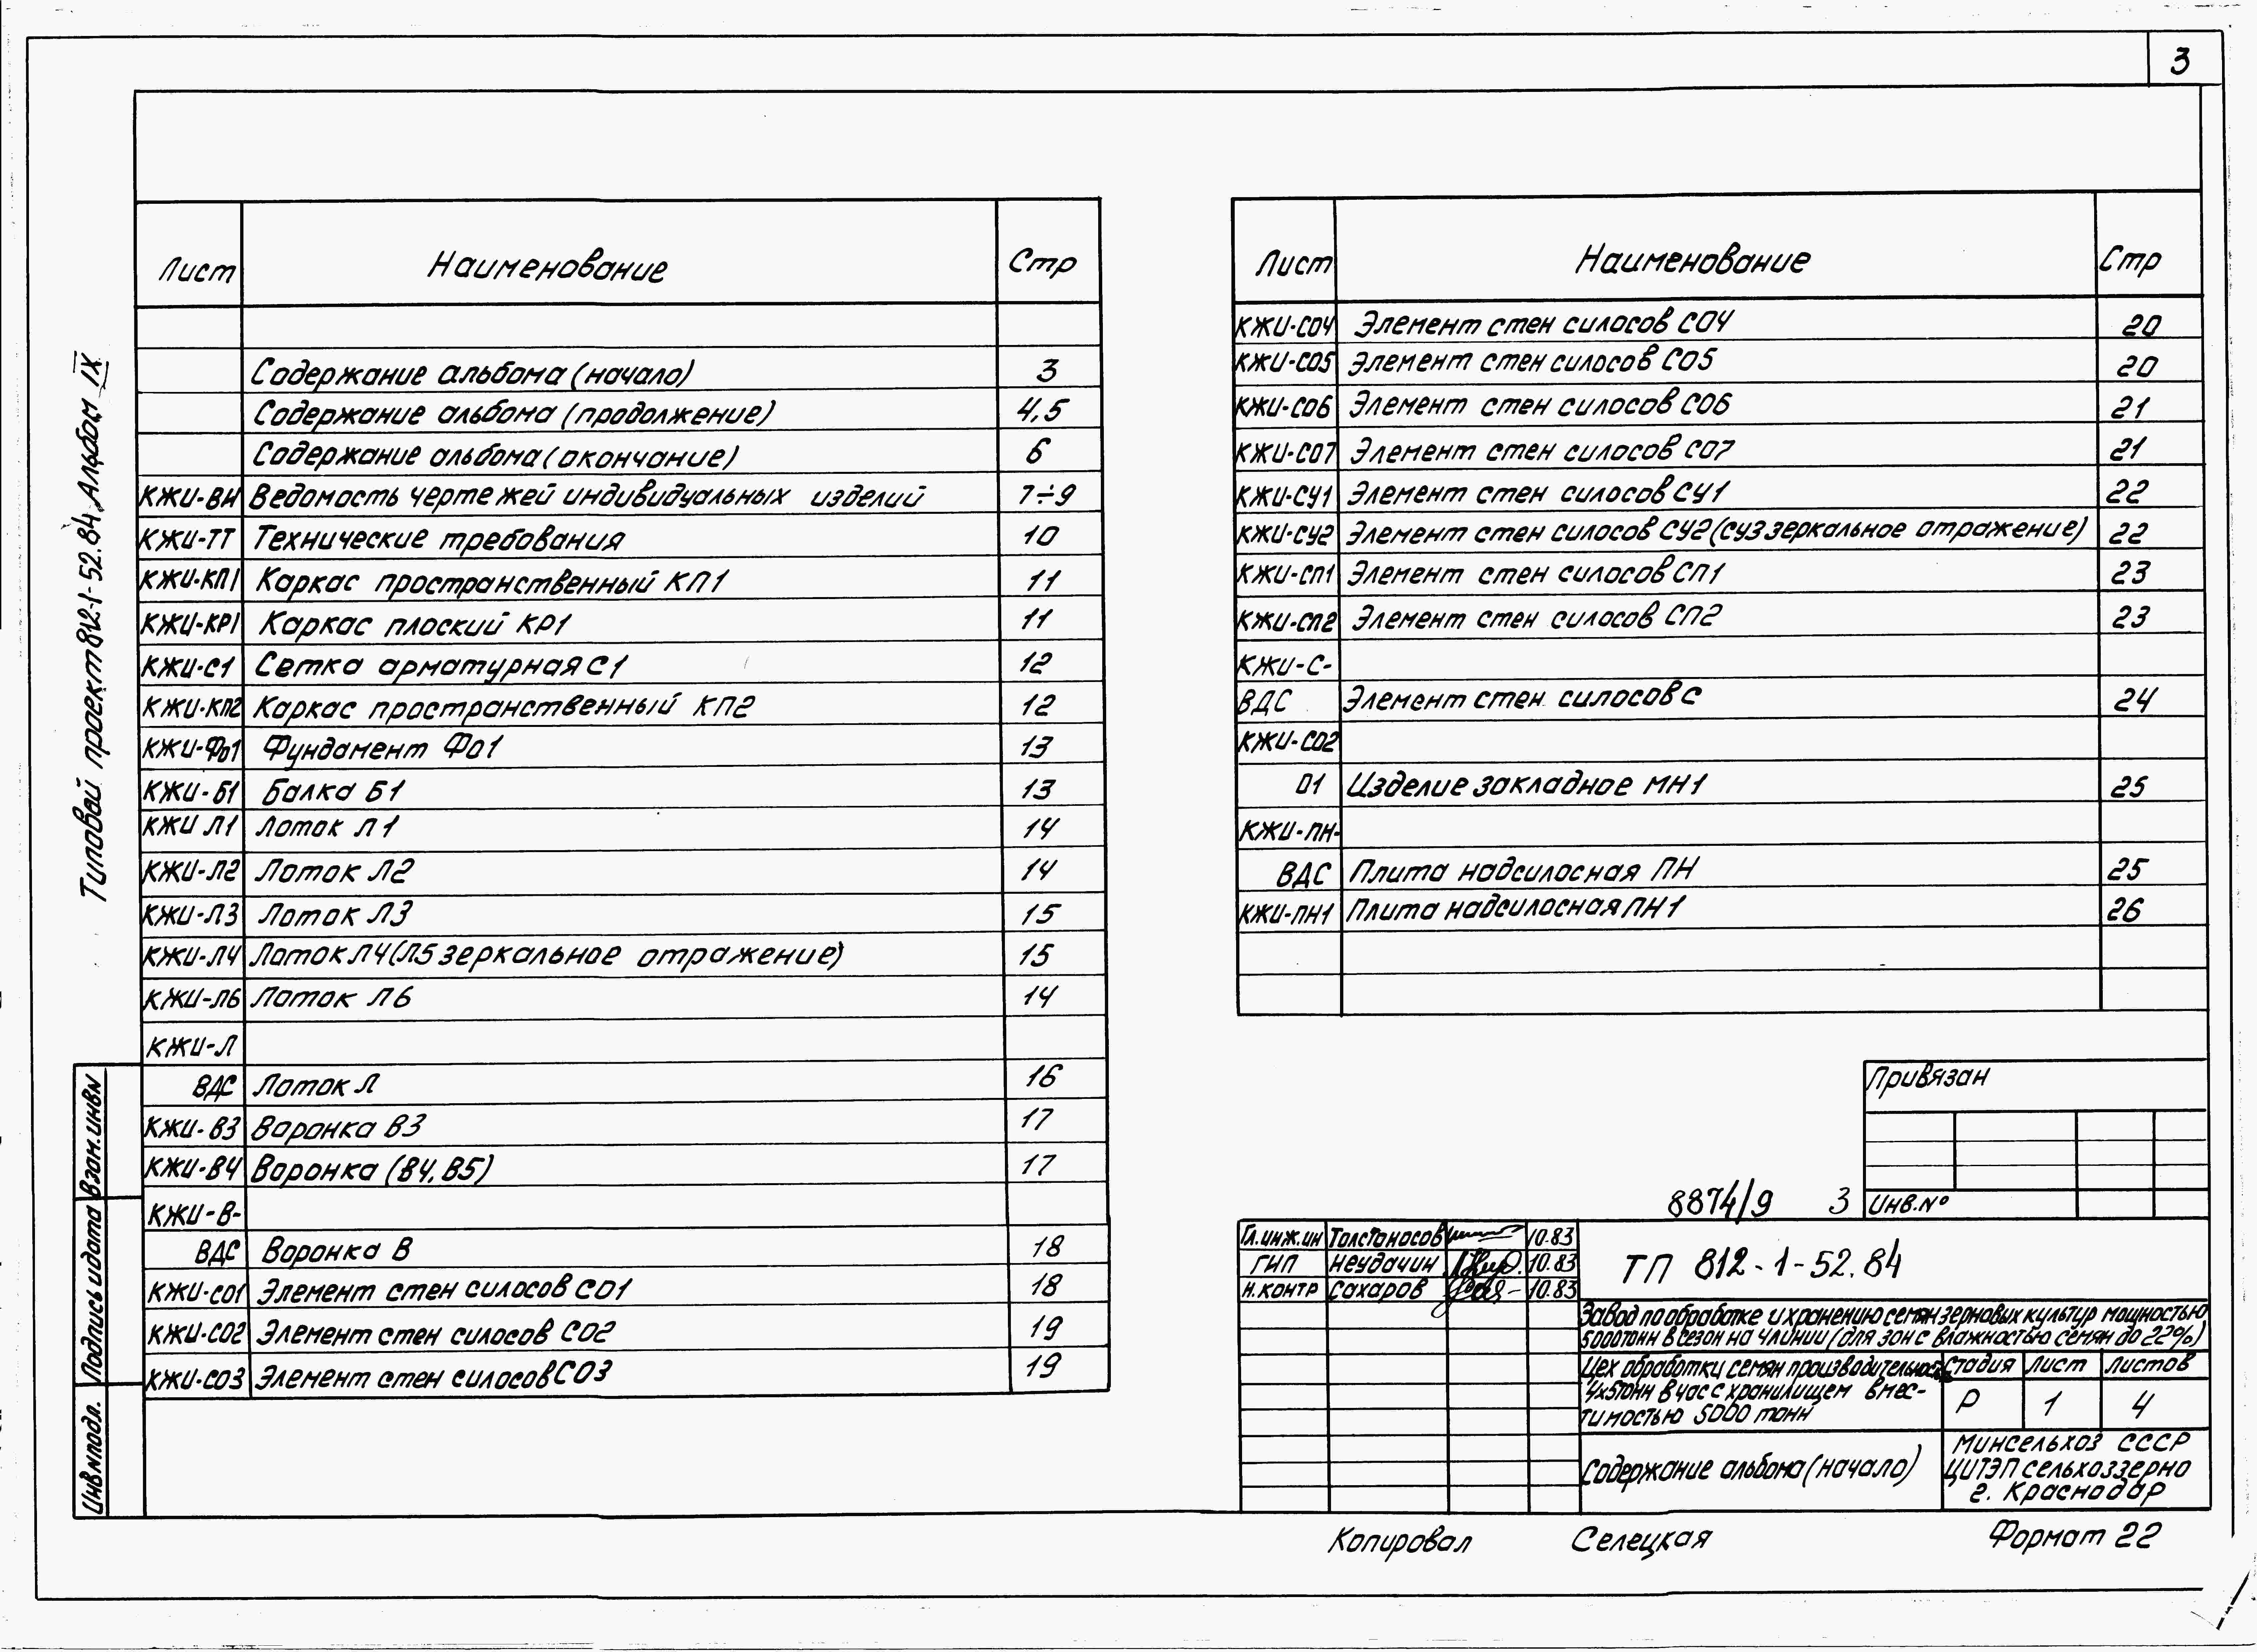 3
Типовой проект 812-1-52.84 Альбом IX
Лист Наименование Стр
Содержание альбома (начало) 3
Содержание альбома (продолжение) 4,5
Содержание альбома (окончание) 6
КЖИ-ВИ Ведомость чертежей индивидуальных изделий 7÷9
КЖИ-ТТ Технические требования 10
КЖИ-КП1 Каркас пространственный КП1 11
КЖИ-КР1 Каркас плоский КР1 11
КЖИ-С1 Сетка арматурная С1 12
КЖИ-КП2 Каркас пространственный КП2 12
КЖИ-Ф01 Фундамент Ф01 13
КЖИ-Б1 Балка Б1 13
КЖИ Л1 Лоток Л1 14
КЖИ-Л2 Лоток Л2 14
КЖИ-Л3 Лоток Л3 15
КЖИ-Л4 Лоток Л4 (Л5 зеркальное отражение) 15
КЖИ-Л6 Лоток Л6 14
КЖИ-Л
ВДС Лоток Л 16
КЖИ-В3 Воронка В3 17
КЖИ-В4 Воронка (В4, В5) 17
КЖИ-В-
ВДС Воронка В 18
КЖИ-СО1 Элемент стен силосов СО1 18
КЖИ-СО2 Элемент стен силосов СО2 19
КЖИ-СО3 Элемент стен силосов СО3 19
Лист Наименование Стр
КЖИ-СО4 Элемент стен силосов СО4 20
КЖИ-СО5 Элемент стен силосов СО5 20
КЖИ-СО6 Элемент стен силосов СО6 21
КЖИ-СО7 Элемент стен силосов СО7 21
КЖИ-СУ1 Элемент стен силосов СУ1 22
КЖИ-СУ2 Элемент стен силосов СУ2 (СУ3 зеркальное отражение) 22
КЖИ-СП1 Элемент стен силосов СП1 23
КЖИ-СП2 Элемент стен силосов СП2 23
КЖИ-С-
ВДС Элемент стен силосов С 24
КЖИ-СО2
01 Изделие закладное МН1 25
КЖИ-ПН-
ВДС Плита надсилосная ПН 25
КЖИ-ПН1 Плита надсилосная ПН1 26
Привязан
Инв.№
8874/9 3
Гл.инж.ин Толстоносов 10.83
ГИП Неудачин 10.83
Н.контр Сахаров 10.83
ТП 812-1-52.84
Завод по обработке и хранению семян зерновых культур мощностью
5000тонн в сезон на 4 линии (для зон с влажностью семян до 22%)
Цех обработки семян производительностью
4х5тонн в час с хранилищем вмес-
тимостью 5000 тонн
Стадия Лист Листов
Р 1 4
Содержание альбома (начало)
Минсельхоз СССР
ЦИТЭПсельхоззерно
г. Краснодар
Копировал Селецкая Формат 22
Взам.инв№
Подпись и дата
Инв№подл.